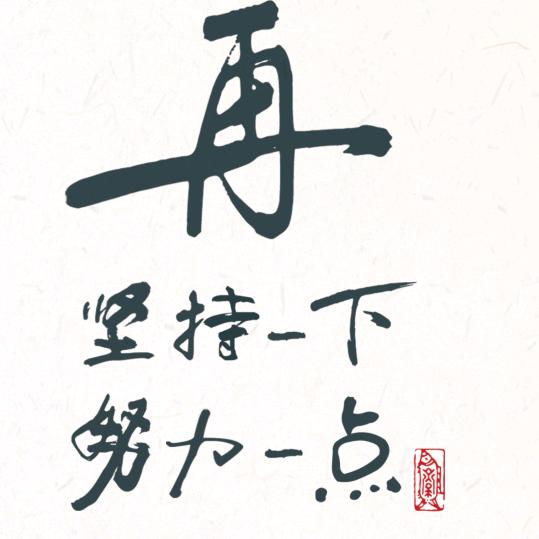 再
坚持一下
努力一点